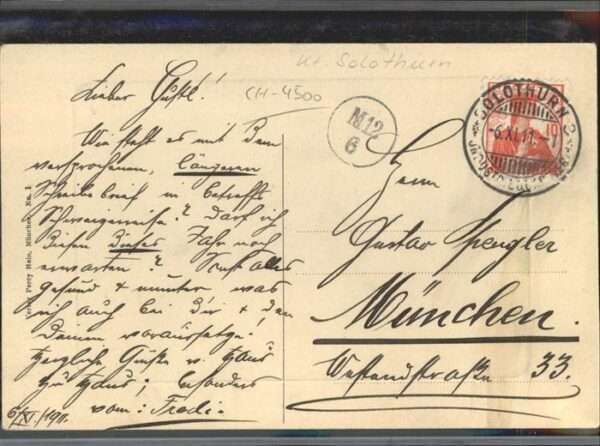 Kt. Solothurn
CH-4500
Lieber Gustl!
Wie steht es mit Dem
versprochenen, längeren
Schreibebrief in betreff
Schweizerreise? Darf ich
Diesen Dieses Jahr noch
erwarten? Sonst alles
gesund & munter was
ich auch bei Dir & den
Deinen voraussetze!
Herzliche Grüße v. Haus
zu Haus; besonders
vom: Fredi.
6/XI./1911.
M12
6
SOLOTHURN 2
-6.XI.11.
10
Herrn
Gustav Spengler
München.
Westendstraße 33.
Verlag Percy Hein, München, No. 1